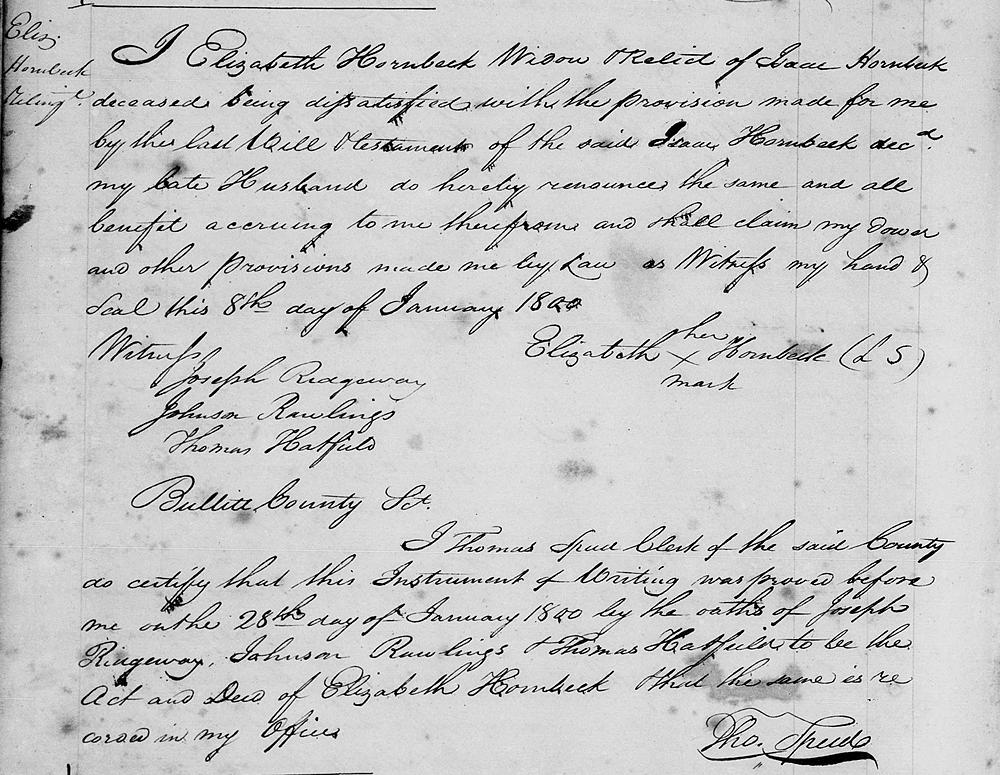 Eliz.
Hornbeck
Relinqt.
I Elizabeth Hornbeck Widow & Relict of Isaac Hornbeck
deceased being dissatisfied with the provision made for me
by the last Will & testament of the said Isaac Hornbeck decd.
my late Husband do hereby renounce the same and all
benefit accruing to me therefrom and shall claim my dower
and other provisions made me by Law as Witness my hand &
Seal this 8th day of January 1800
Elizabeth her X mark Hornbeck (L S)
Witness
Joseph Ridgeway
Johnson Rawlings
Thomas Hatfield
Bullitt County Sct.
I Thomas Speed Clerk of the said County
do certify that this Instrument of Writing was proved before
me on the 28th day of January 1800 by the oaths of Joseph
Ridgeway, Johnson Rawlings & Thomas Hatfield to be the
Act and Deed of Elizabeth Hornbeck & that the same is re
corded in my Office
Tho. Speed